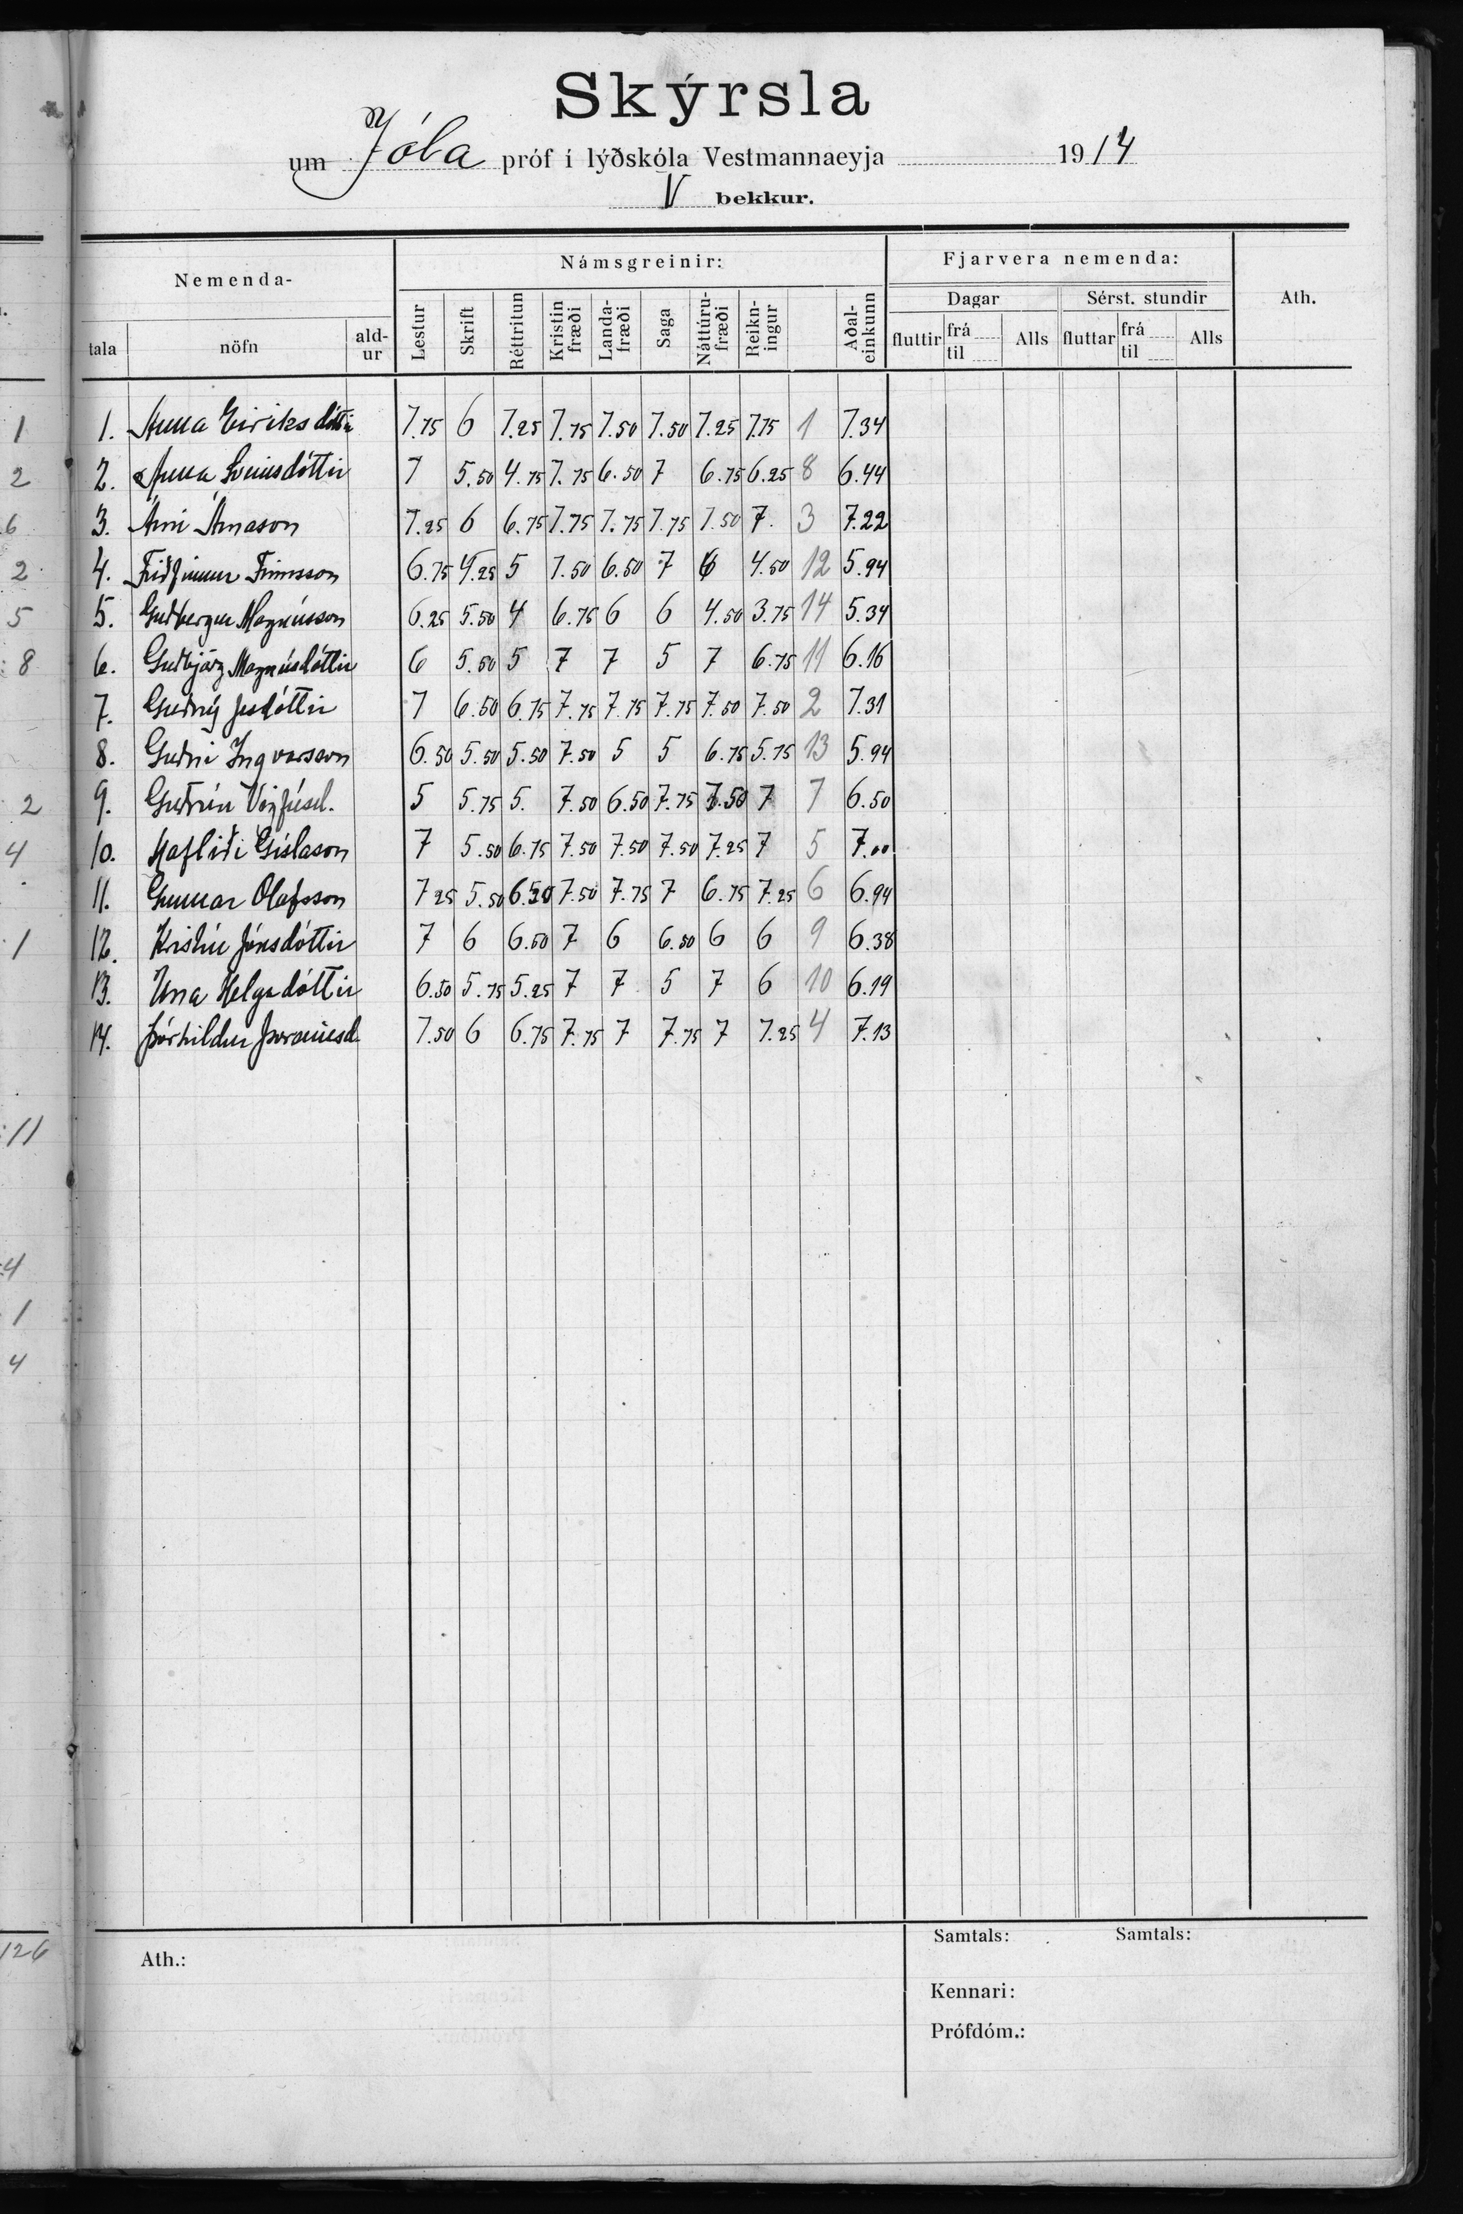 Skýrsla
um Jóla próf í lýðskóla Vestmannaeyja 1914
V bekkur.
Nemenda- Námsgreinir: Fjarvera nemenda: Ath.
Dagar Sérst. stundir
tala nöfn ald-ur Lestur Skrift Réttritun Kristin fræði Landa-fræði Saga Náttúru-fræði Reikn-ingur Aðal-einkunn fluttir frá til Alls fluttar frá til Alls
1. Anna Eiriksdóttir 7.75 6 7.25 7.75 7.50 7.50 7.25 7.75 1 7.34
2. Anna Sveinsdóttir 7 5.50 4.75 7.75 6.50 7 6.75 6.25 8 6.44
3. Árni Árnason 7.25 6 6.75 7.75 7.75 7.75 7.50 7. 3 7.22
4. Friðfinnur Finnsson 6.75 4.25 5 7.50 6.50 7 6 4.50 12 5.94
5. Guðbergur Magnússon 6.25 5.50 4 6.75 6 6 4.50 3.75 14 5.34
6. Guðbjörg Magnúsdóttir 6 5.50 5 7 7 5 7 6.75 11 6.16
7. Guðný Jesdóttir 7 6.50 6.75 7.75 7.75 7.75 7.50 7.50 2 7.31
8. Guðni Ingvarsson 6.50 5.50 5.50 7.50 5 5 6.75 5.75 13 5.94
9. Guðrún Vigfúsd. 5 5.75 5. 7.50 6.50 7.75 7.50 7 7 6.50
10. Hafliði Gíslason 7 5.50 6.75 7.50 7.50 7.50 7.25 7 5 7.00
11. Gunnar Olafsson 7 25 5.50 6.50 7.50 7.75 7 6.75 7.25 6 6.94
12. Kristín Jónsdóttir 7 6 6.50 7 6 6.50 6 6 9 6.38
13. Una Helgadóttir 6.50 5.75 5.25 7 7 5 7 6 10 6.19
14. Þórhildur 7.50 6 6.75 7.75 7 7.75 7 7.25 4 7.13
Ath.: Samtals: Samtals:
Kennari:
Prófdóm.: